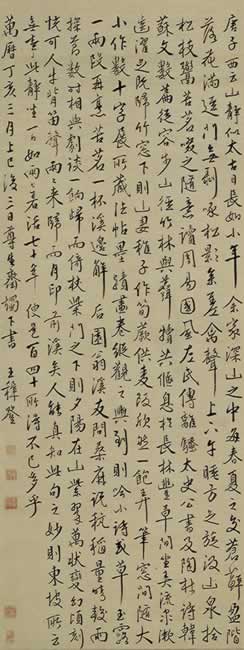 唐子西云山靜似太古日長如小年余家深山之中每春夏之交蒼蘚盈階
落花滿逕門無剝啄松影參差禽聲上下午睡方足旋汲山泉拾
松枝煮苦茗啜之隨意讀周易國風左氏傳離騷太史公書及陶杜詩韓
蘇文數篇從容步山徑竹林與麛犢共偃息於長林豐草間坐弄流泉漱
齒濯足既歸竹窗下則山妻稚子作筍蕨供麥飯欣然一飽弄筆窗間隨大
小作數十字展所藏法帖墨蹟畫卷縱觀之興到則吟小詩或草玉露
一兩段再烹苦茗一杯溪邊解后園翁溪友問桑麻說秔稻量晴較雨
探節數時相與劇談餉歸而倚杖柴門之下則夕陽在山紫翠萬狀變幻頃刻
恍可人牛背笛聲兩兩來歸而月印前溪矣人能真知此句之妙則東坡所云
無事此靜坐一日如兩日若活七十年便是百四十所得不已多乎
萬曆丁亥三月上巳後三日尊生齋燭下書 王穉登